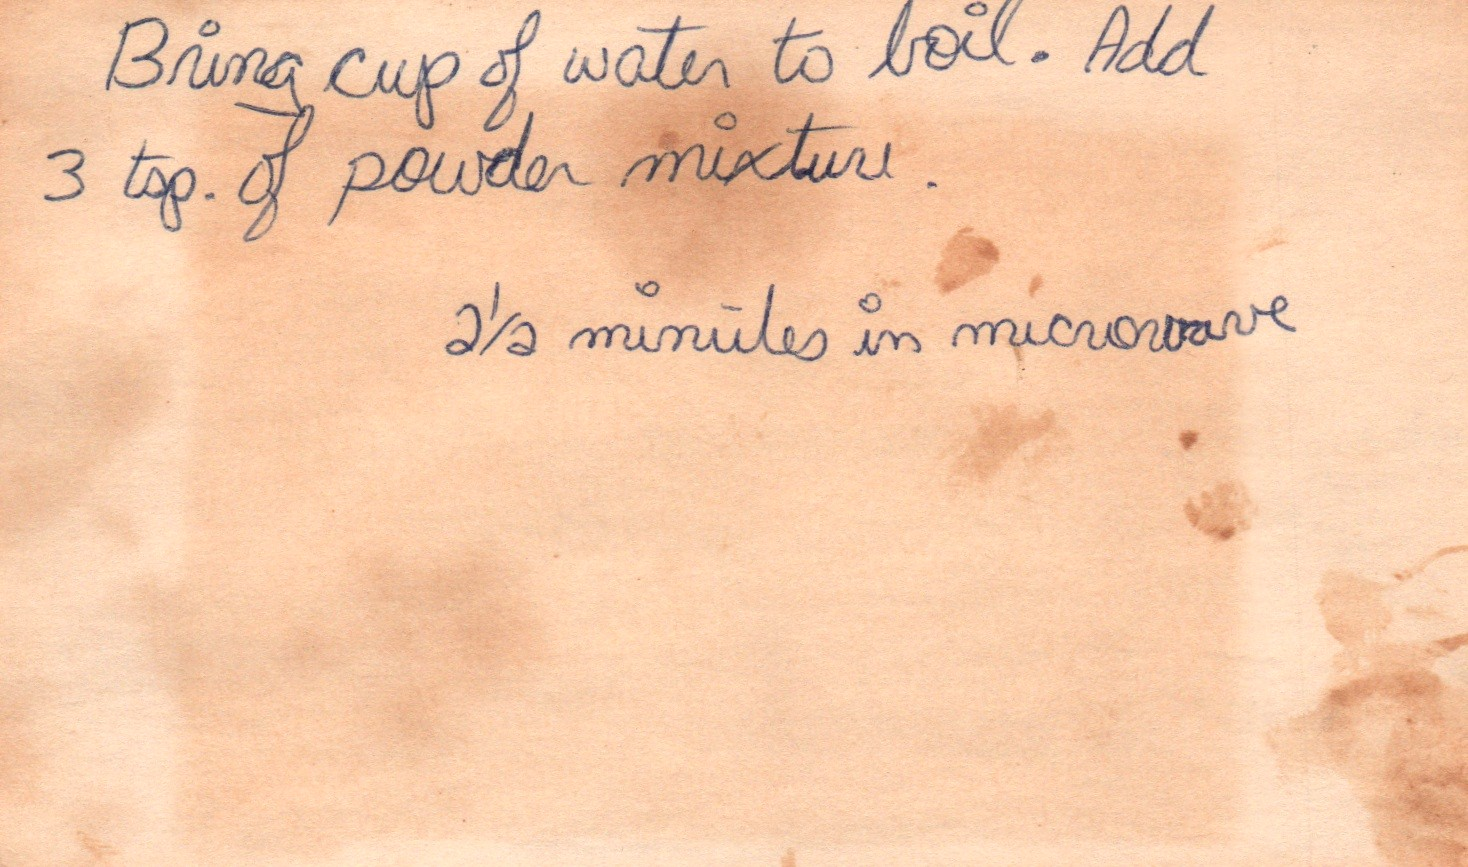 Bring cup of water to boil. Add
3 tsp. of powder mixture.
2 1/2 minutes in microwave